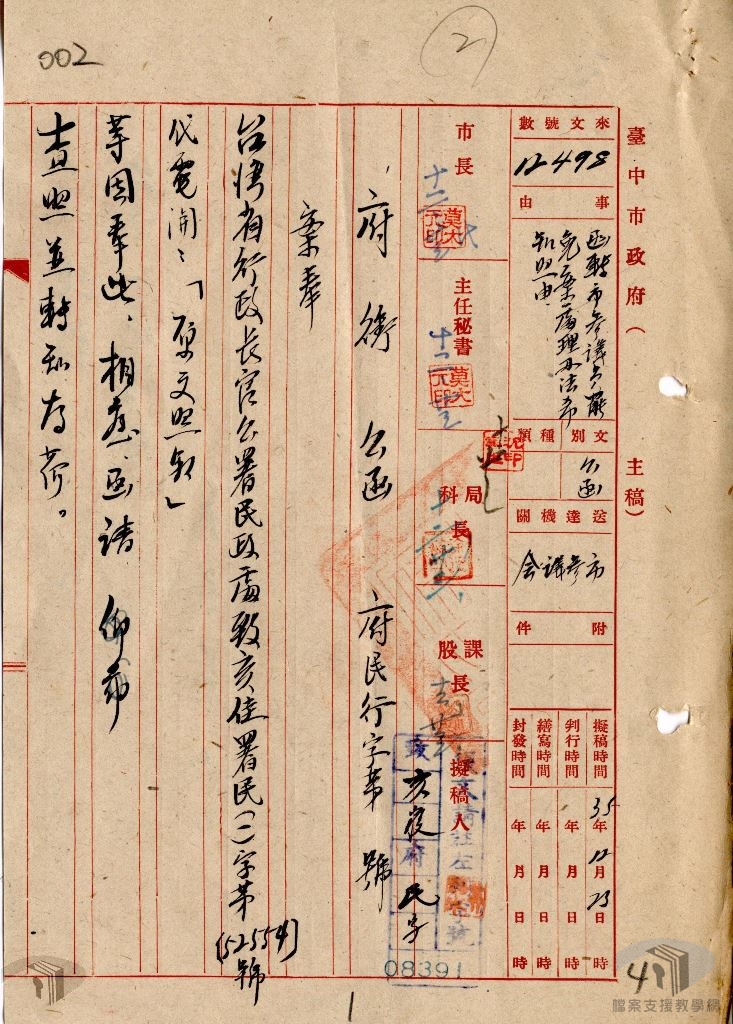 002
2
臺中市政府（　主稿）
來文號數
12498
事由
函轉市參議員罷
免案處理办法希
知照由
文別種類
公函
送達機關
市參議会
附件
擬稿時間 35年12月23日 時
判行時間 年 月 日 時
繕寫時間 年 月 日 時
封發時間 年 月 日 時
市長
莫大元印
主任秘書
莫大元印
局科長
課股長
擬稿人
府民字
08391
府銜公函 府民行字第 號
案奉
台灣省行政長官公署民政處致亥佳署民(一)字第(52554)號
代電開：「原文照敘」
等因奉此，相應函請
查照並轉知為荷。
1
4
檔案支援教學網